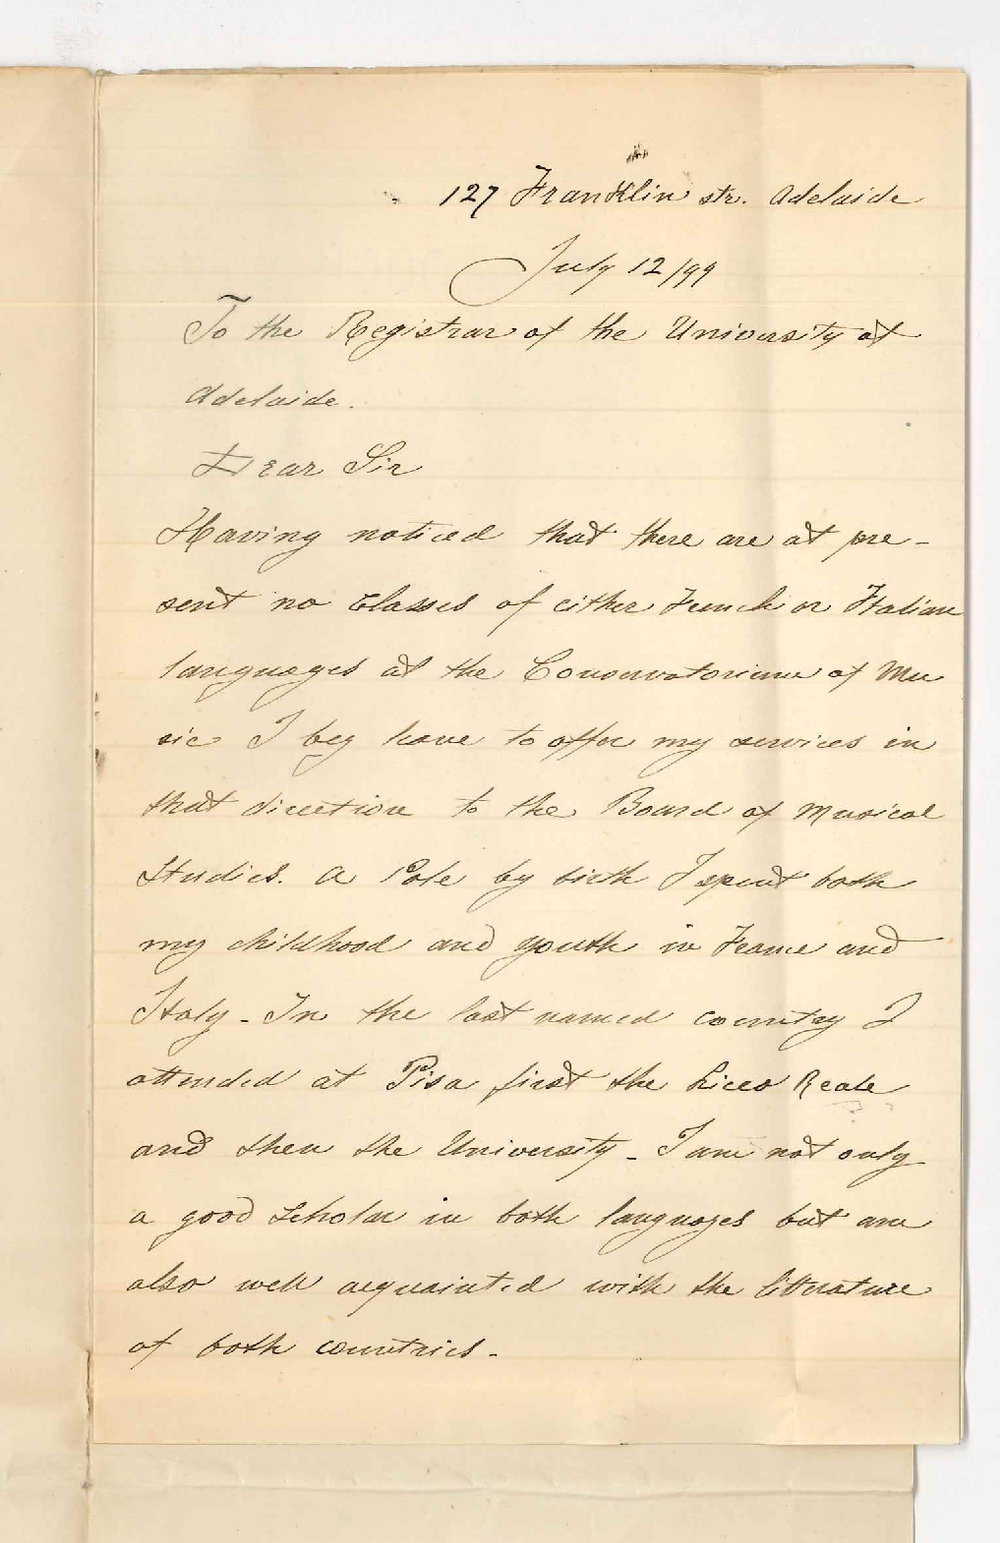 127 Franklin str. Adelaide
July 12/99
To the Registrar of the University of
Adelaide.
Dear Sir
Having noticed that there are at pre-
sent no classes of either French or Italian
languages at the Conservatorium of Mu
sic I beg leave to offer my services in
that direction to the Board of Musical
Studies. A Pole by birth I spent both
my childhood and youth in France and
Italy - In the last named country I
attended at Pisa first the Liceo Reale
and then the University - I am not only
a good scholar in both languages but am
also well acquainted with the litterature
of both countries -